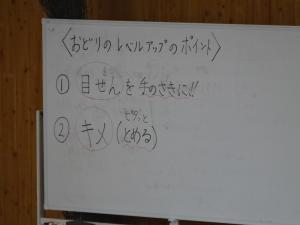 〈おどりのレベルアップのポイント〉
① 目せんを手のさきに!!
ピタッと
② キメ(とめる)